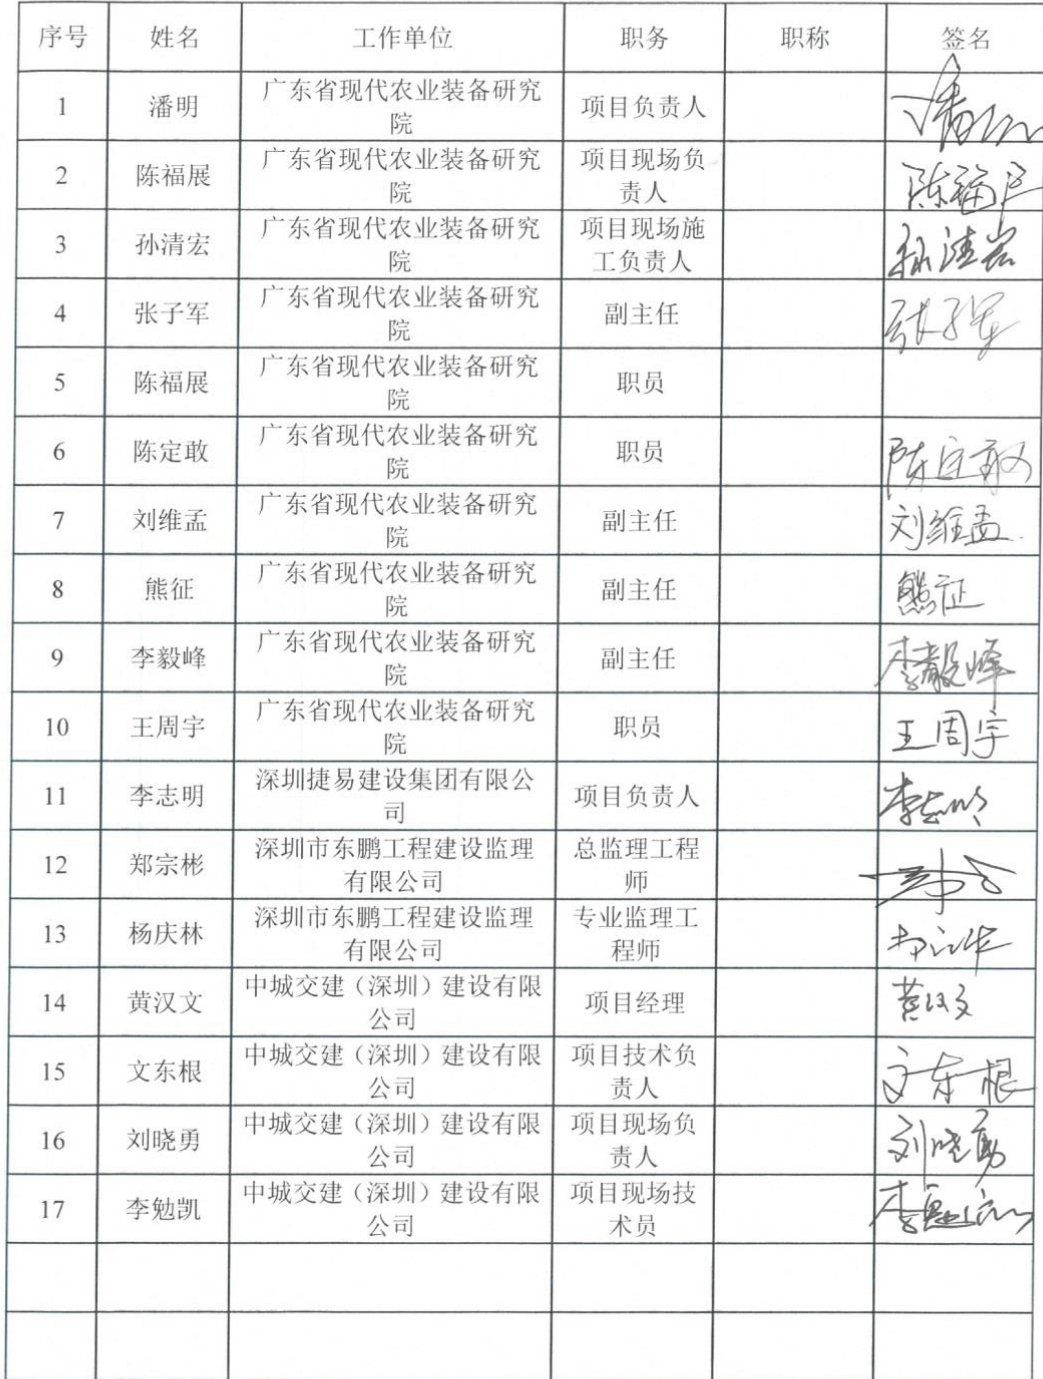 序号 姓名 工作单位 职务 职称 签名
1 潘明 广东省现代农业装备研究 项目负责人
院
2 陈福展 广东省现代农业装备研究 项目现场负 陈福展
院 责人
3 孙清宏 广东省现代农业装备研究 项目现场施 孙清宏
院 工负责人
4 张子军 广东省现代农业装备研究 副主任 张子军
院
5 陈福展 广东省现代农业装备研究 职员
院
6 陈定敢 广东省现代农业装备研究 职员 陈定敢
院
7 刘维孟 广东省现代农业装备研究 副主任 刘维孟
院
8 熊征 广东省现代农业装备研究 副主任 熊征
院
9 李毅峰 广东省现代农业装备研究 副主任 李毅峰
院
10 王周宇 广东省现代农业装备研究 职员 王周宇
院
11 李志明 深圳捷易建设集团有限公 项目负责人 李志明
司
12 郑宗彬 深圳市东鹏工程建设监理 总监理工程
有限公司 师
13 杨庆林 深圳市东鹏工程建设监理 专业监理工
有限公司 程师
14 黄汉文 中城交建（深圳）建设有限 项目经理 黄汉文
公司
15 文东根 中城交建（深圳）建设有限 项目技术负 文东根
公司 责人
16 刘晓勇 中城交建（深圳）建设有限 项目现场负 刘晓勇
公司 责人
17 李勉凯 中城交建（深圳）建设有限 项目现场技 李勉凯
公司 术员